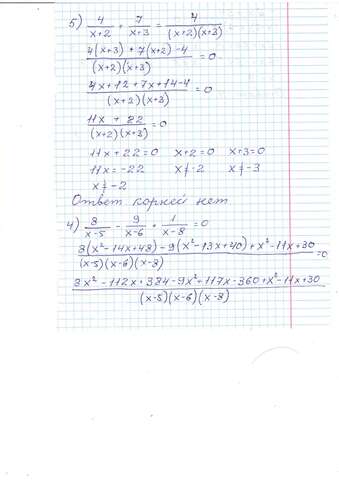 5) 4/(x+2) + 7/(x+3) = 4/((x+2)(x+3))
(4(x+3) + 7(x+2) - 4)/((x+2)(x+3)) = 0
(4x + 12 + 7x + 14 - 4)/((x+2)(x+3)) = 0
(11x + 22)/((x+2)(x+3)) = 0
11x + 22 = 0 x + 2 = 0 x + 3 = 0
11x = -22 x ≠ -2 x ≠ -3
x ≠ -2
Ответ корней нет
4) 8/(x-5) - 9/(x-6) + 1/(x-8) = 0
(8(x² - 14x + 48) - 9(x² - 13x + 40) + x² - 11x + 30)/((x-5)(x-6)(x-8)) = 0
(8x² - 112x + 384 - 9x² + 117x - 360 + x² - 11x + 30)/((x-5)(x-6)(x-8))